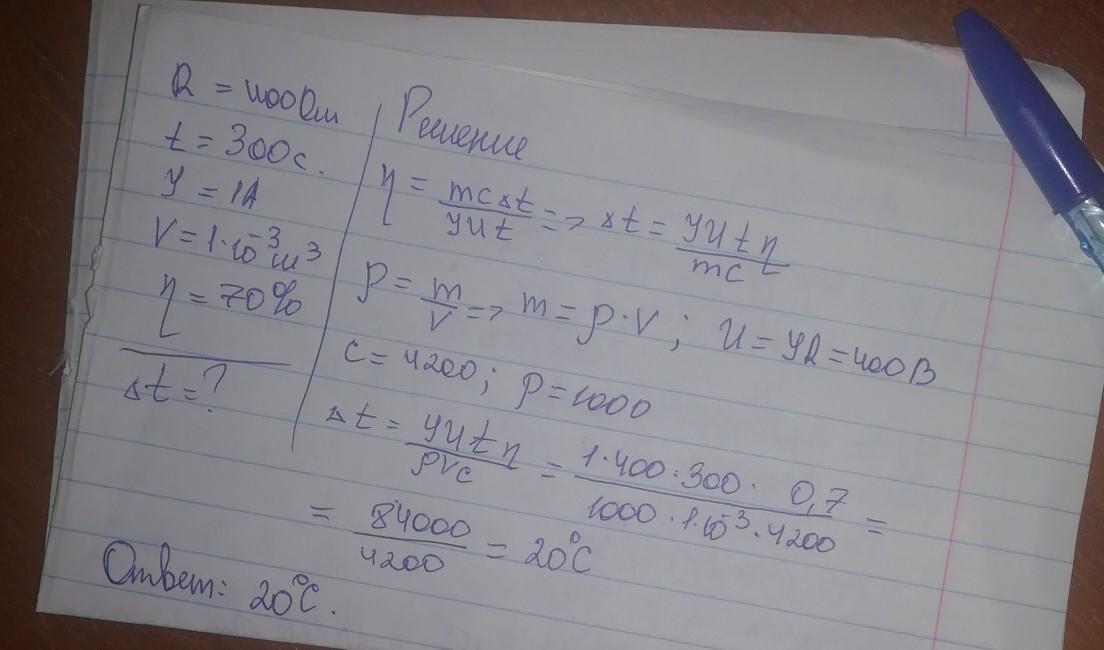 R = 400 Ом
t = 300 с.
У = 1А
V = 1·10⁻³ м³
η = 70%
Δt = ?
Решение
η = mcΔt/УUt => Δt = УUtη/mc
ρ = m/V => m = ρ·V; U = УR = 400В
c = 4200; ρ = 1000
Δt = УUtη/ρVc = 1·400·300·0,7/1000·1·10⁻³·4200 =
= 84000/4200 = 20°C
Ответ: 20°C.